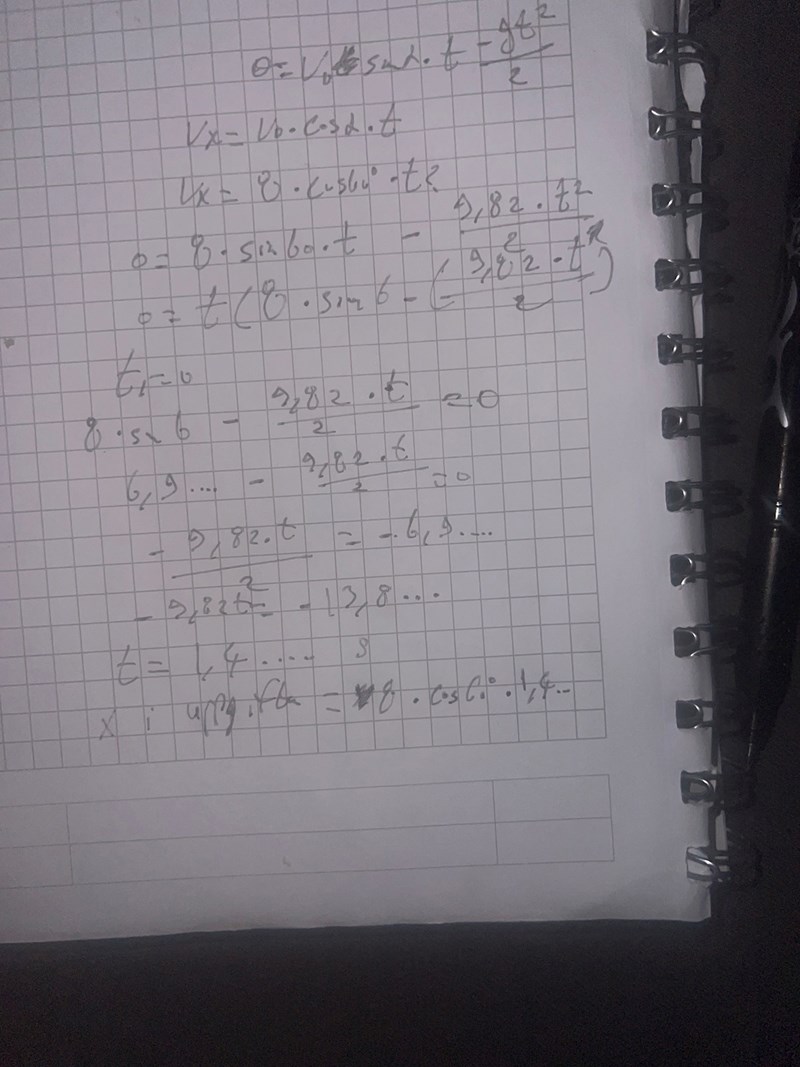 0 = V₀ sinα · t - gt²/2
Vx = V₀ · cosα · t
Vx = 8 · cos60° · t?
0 = 8 · sin60 · t - 9,82 · t²/2
0 = t(8 · sin6 - (-9,82 · t/2)
t₁ = 0
8 · sin6 - 9,82 · t/2 = 0
6,9.... - 9,82 · t/2 = 0
- 9,82 · t/2 = -6,9....
- 9,82t = -13,8...
t = 1,4..... s
x i uppgiften = 8 · cos60° · 1,4...